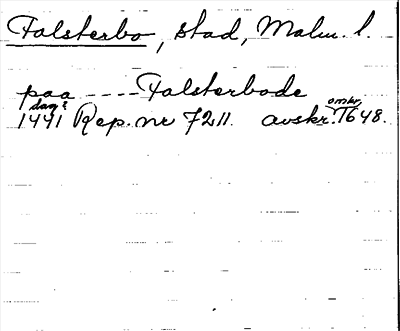 Falsterbo, stad, Malm. l.
paa ---- Falsterbode
1441 dag? Rep. nr 7211. avskr. omkr. 1648.